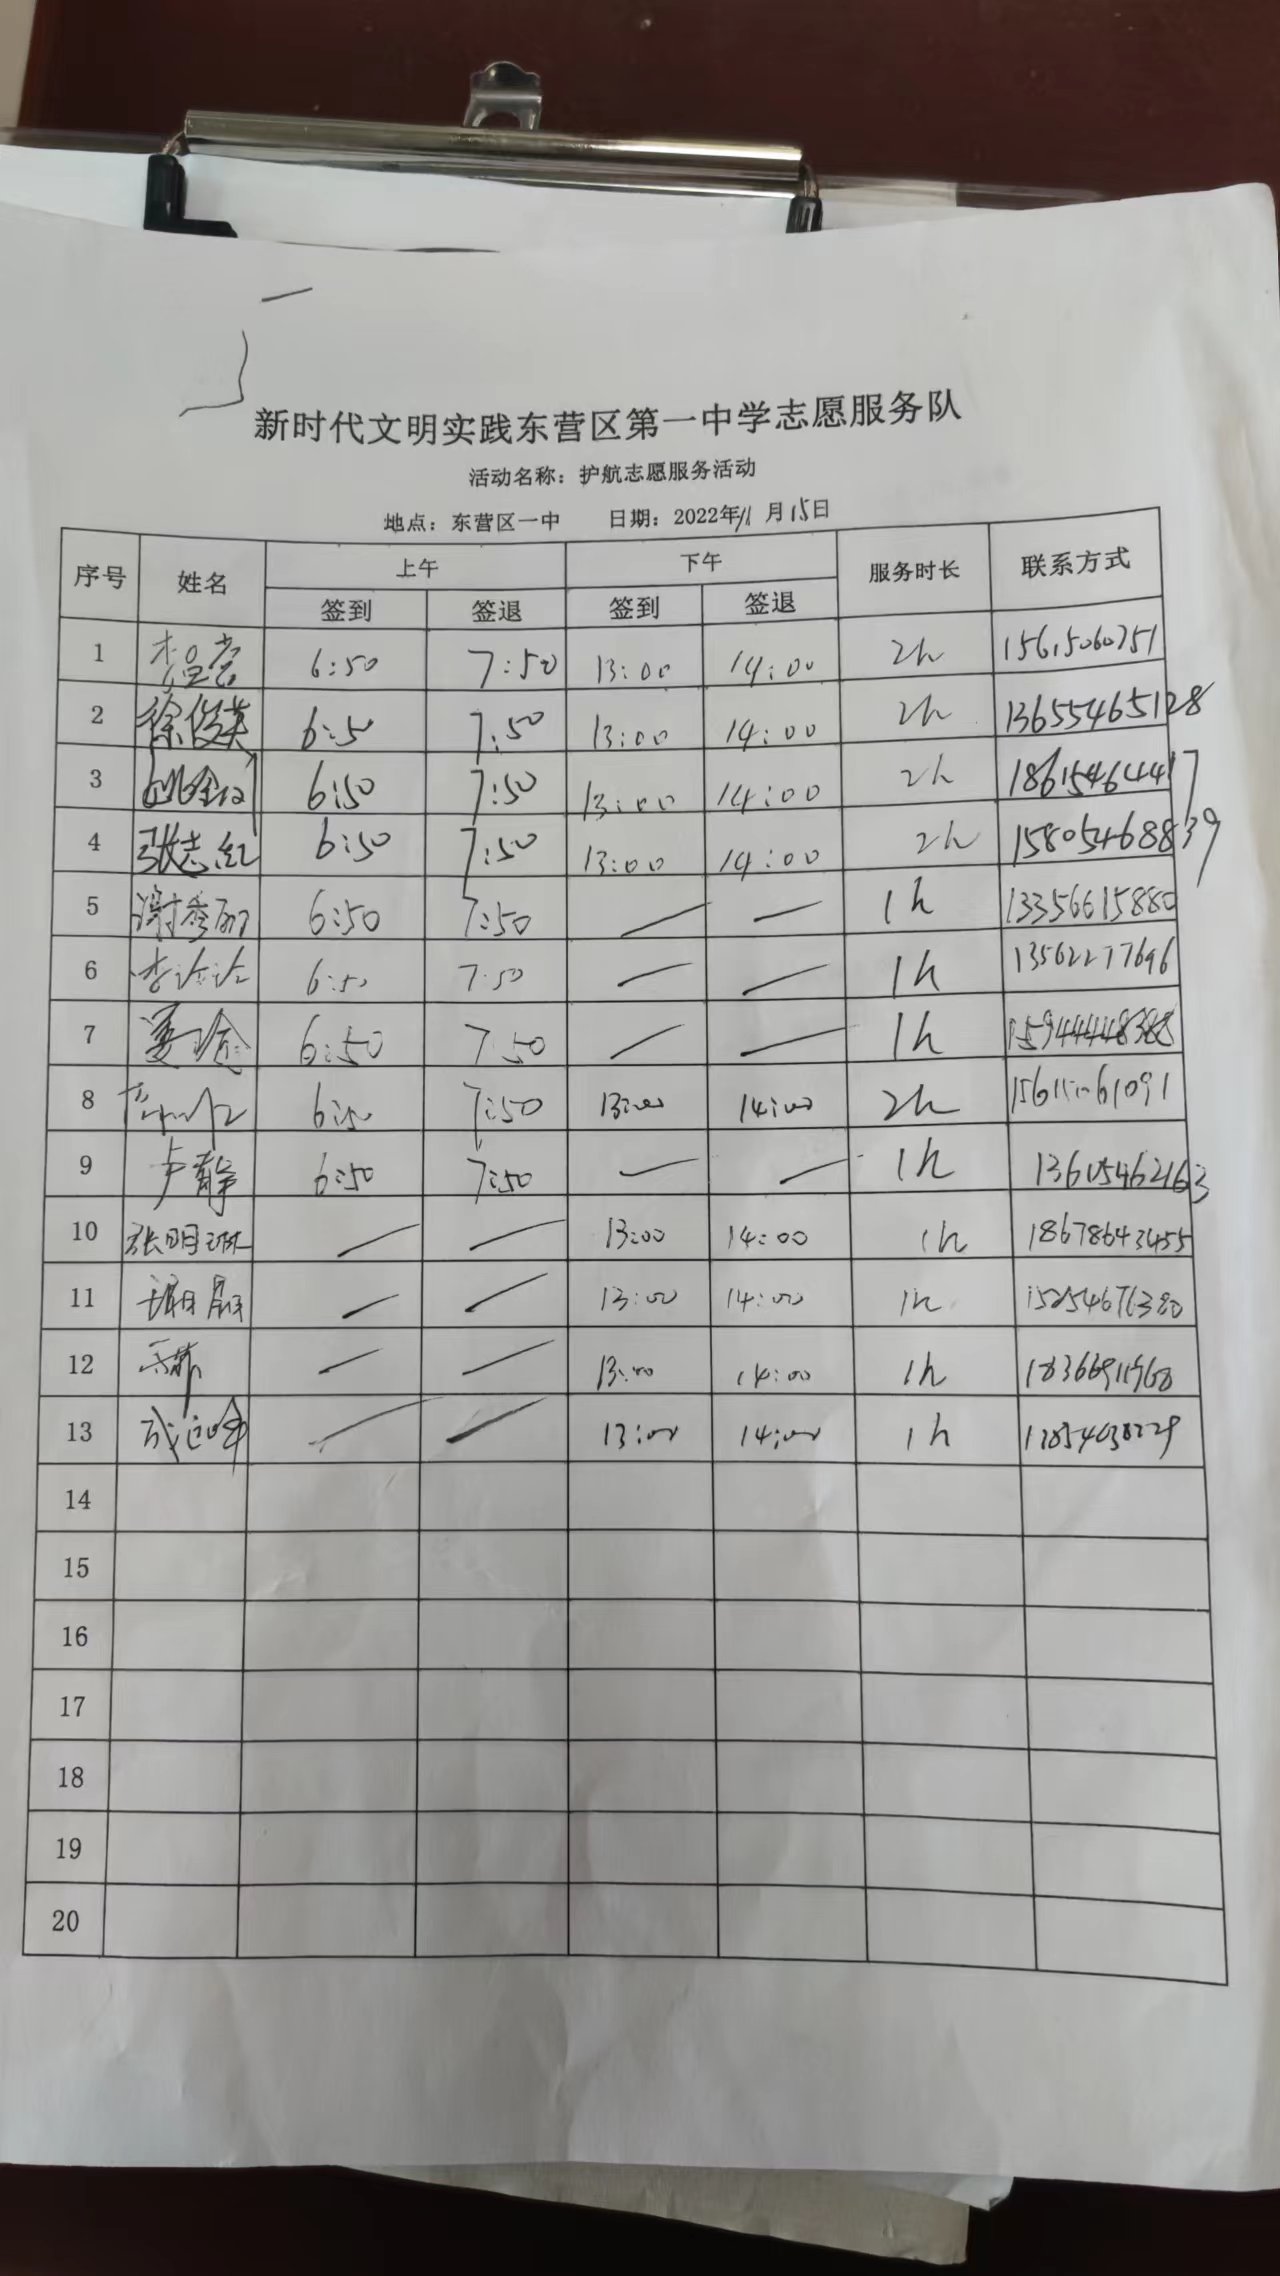 新时代文明实践东营区第一中学志愿服务队
活动名称：护航志愿服务活动
地点：东营区一中 日期：2022年11月15日
序号 姓名 上午 下午 服务时长 联系方式
签到 签退 签到 签退
1 6:50 7:50 13:00 14:00 2h 15615060751
2 徐俊英 6:50 7:50 13:00 14:00 2h 13655465128
3 6:50 7:50 13:00 14:00 2h 18615464417
4 张志红 6:50 7:50 13:00 14:00 2h 15805468839
5 谢秀丽 6:50 7:50 — — 1h 13356615880
6 6:50 7:50 — — 1h 13562277696
7 6:50 7:50 — — 1h
8 6:50 7:50 13:00 14:00 2h
9 卢静 6:50 7:50 — — 1h 13605462163
10 张明琳 — — 13:00 14:00 1h 18678643455
11 — — 13:00 14:00 1h
12 — — 13:00 14:00 1h
13 — — 13:00 14:00 1h
14
15
16
17
18
19
20